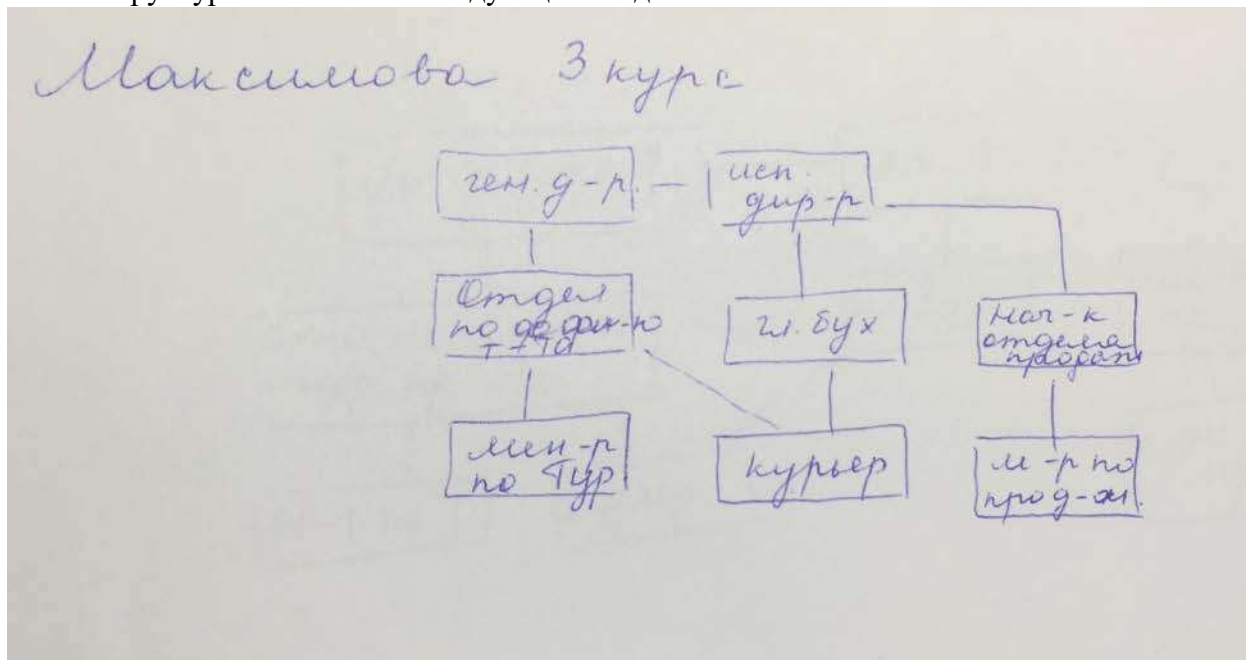 Максимова 3 курс
ген. д-р.
исп.
дир-р
Отдел
по
т-та
гл. бух
нач-к
отдела
продаж
мен-р
по Тур
курьер
м-р по
прод-ж.